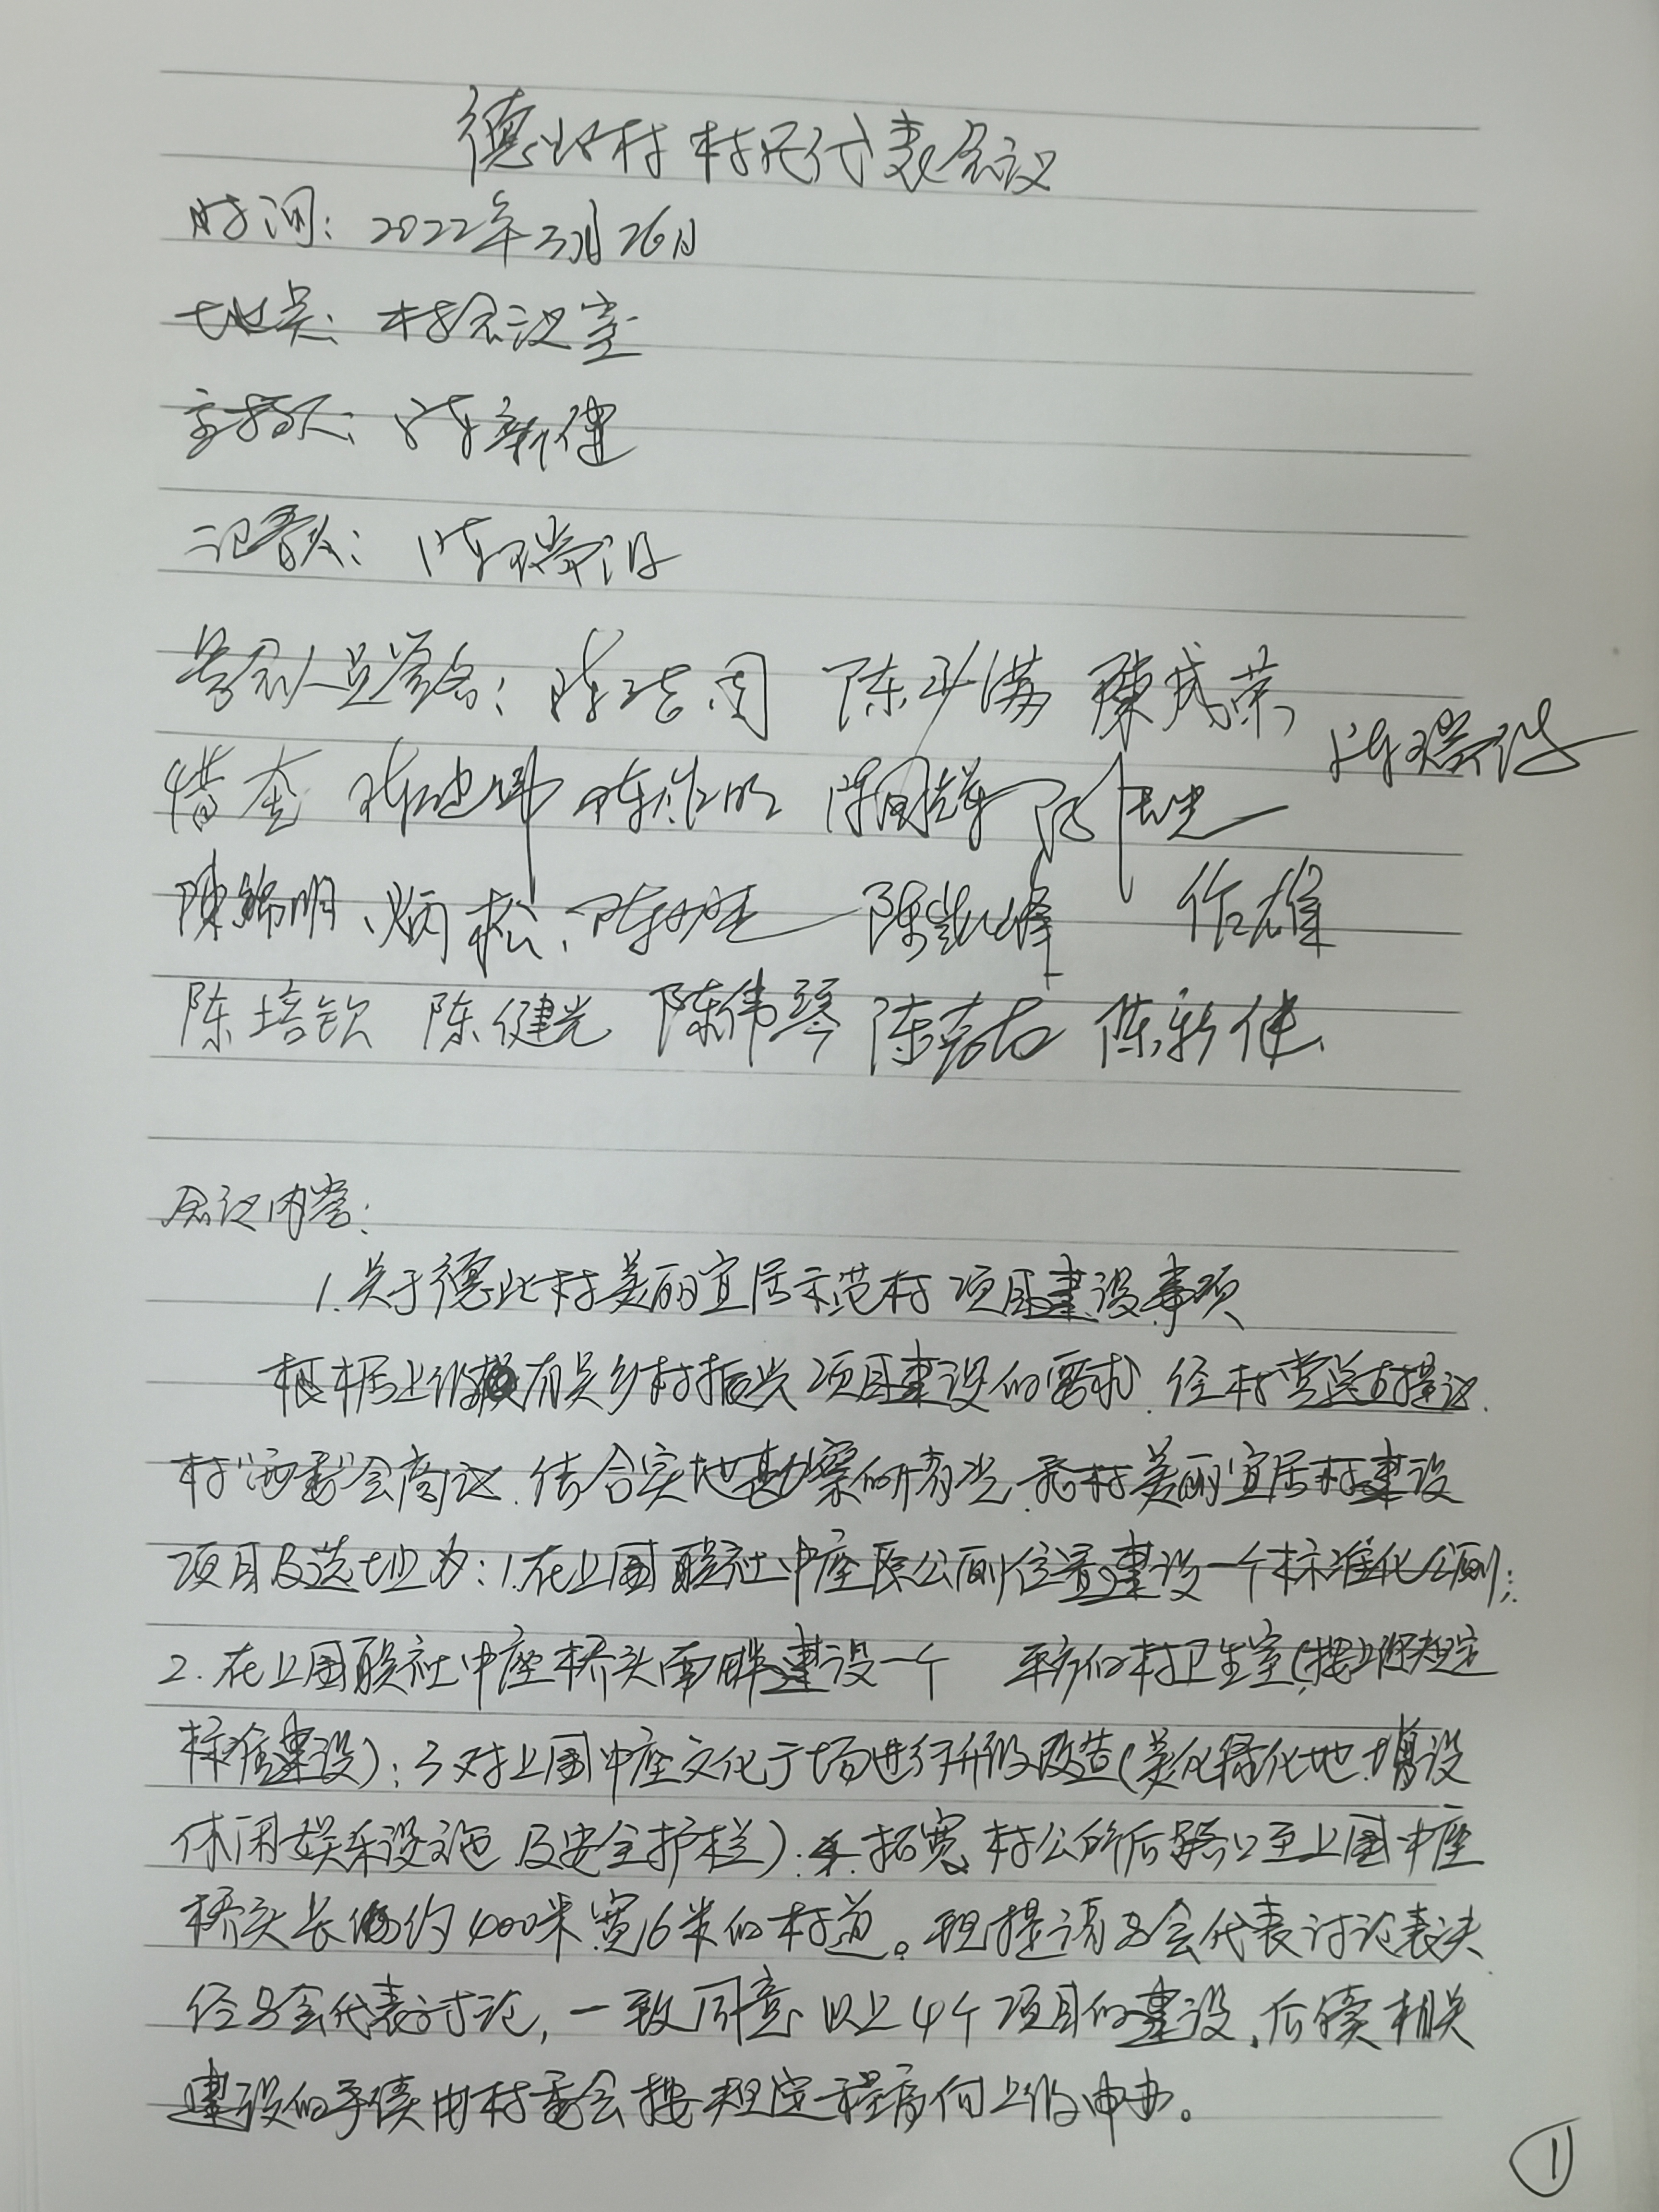 德北村村民代表会议
时间：2022年3月26日
地点：村会议室
主持人：陈新健
记录人：陈瑞
与会人员签名：陈 陈 满 陳成荣
陈瑞
惜奎 陈建 陈 明 陈 辉 陈
陳锦明、炳松、陈 陈凯峰 作雄
陈培钦 陈健光 陈伟琴 陈 陈新健
会议内容：
1.关于德北村美丽宜居示范村项目建设事项
根据上级有关乡村振兴项目建设的要求，经村党总支提议，
村“两委”会商议，结合实地勘察的情况，我村美丽宜居村建设
项目及选址为：1.在上围联社中座原公厕位置建设一个标准化公厕；
2.在上围联社中座桥头南畔建设一个 平方的村卫生室(按上级规定
标准建设)；3.对上围中座文化广场进行升级改造(美化绿化地，增设
休闲娱乐设施及安全护栏)；4.拓宽村公所后路口至上围中座
桥头长约400米宽16米的村道。现提请与会代表讨论表决
经与会代表讨论，一致同意以上4个项目的建设，后续相关
建设的手续由村委会按规定程序向上级申办。
1